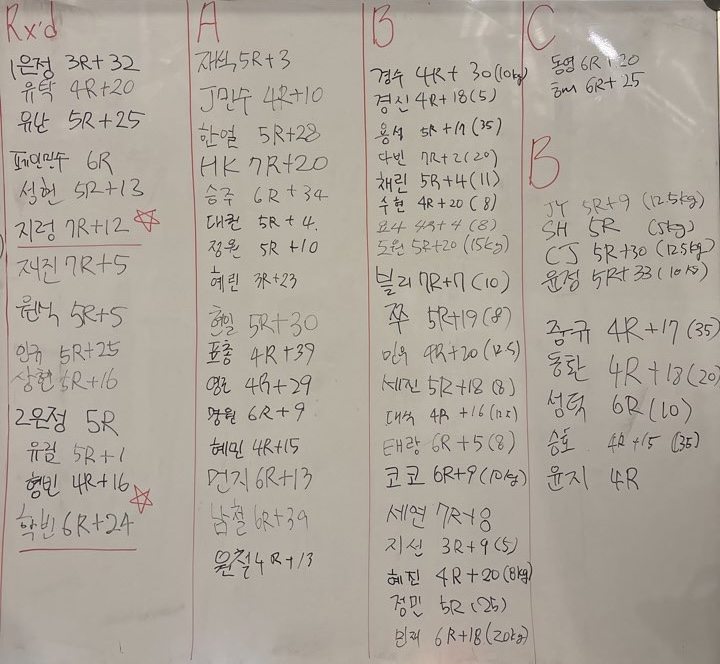 Rx'd
1은정 3R+32
유탁 4R+20
유난 5R+25
포세인민수 6R
석헌 5R+13
지렁 7R+12
재진 7R+5
원식 5R+5
인규 5R+25
상환 5R+16
2은정 5R
유림 5R+1
형빈 4R+16
학빈 6R+24
A
재석 5R+3
J민수 4R+10
한얼 5R+28
HK 7R+20
승주 6R+34
대권 5R+4.
정원 5R+10
혜린 3R+23
현일 5R+30
표종 4R+39
4R+29
명원 6R+9
혜민 4R+15
먼지 6R+13
남철 6R+39
윤철 4R+13
B
경수 4R+30(10kg)
경신 4R+18(5)
용석 5R+17(35)
다빈 7R+2(20)
채린 5R+4(11)
수현 4R+20(8)
4R+4(8)
도원 5R+20(15kg)
블리 7R+7(10)
쭈 5R+19(8)
민우 4R+20(12.5)
세진 5R+18(8)
대석 4R+16(12.5)
태랑 6R+5(8)
코코 6R+9(10kg)
세연 7R+8
지선 3R+9(5)
혜진 4R+20(8kg)
정민 5R(25)
6R+18(20kg)
C
동영 6R+20
6R+25
B
JY 5R+9(12.5kg)
SH 5R(5kg)
CJ 5R+30(12.5kg)
윤정 5R+33(10kg)
중규 4R+17(35)
동환 4R+18(20)
섬턱 6R(10)
승호 4R+15(35)
윤지 4R